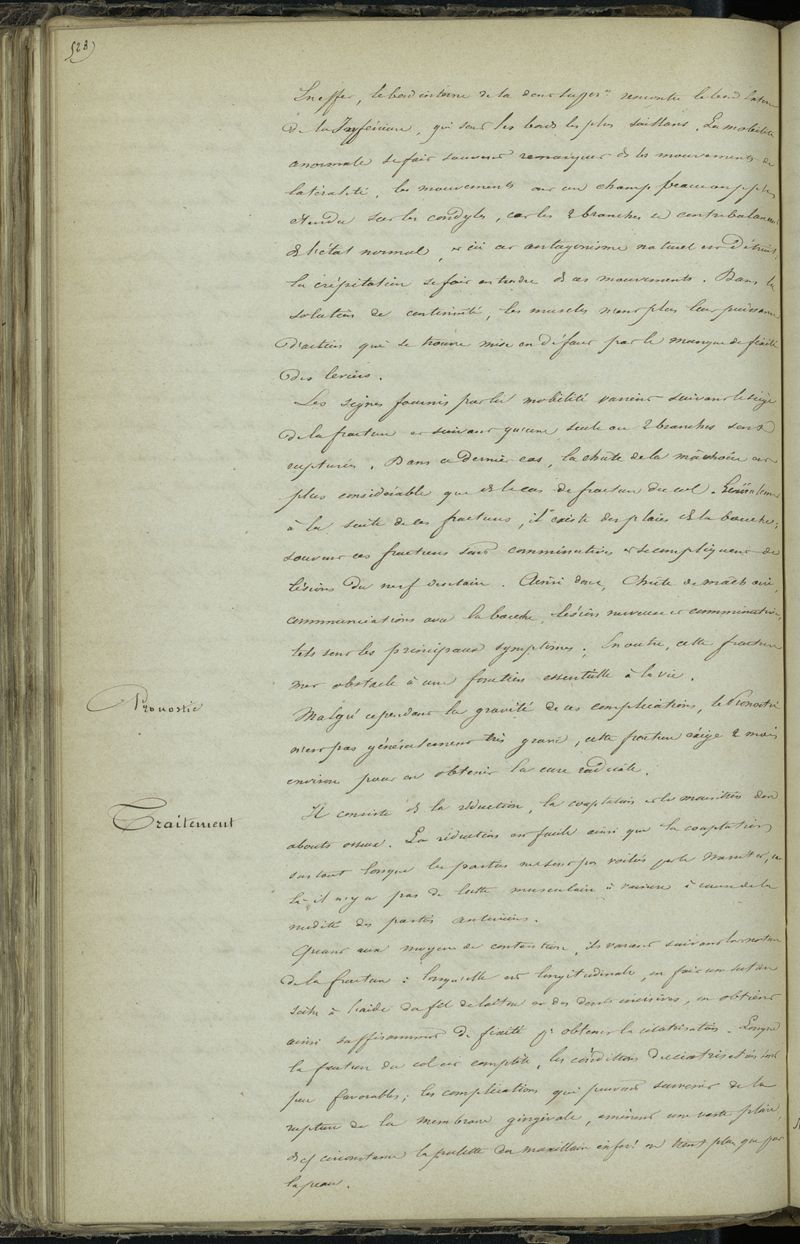 523)
En effet, le bord interne de la dent supre rencontre le bord
de la Inférieure, qui sont les bords les plus saillans. La mobilité
anormale se fait souvent remarquer ds les mouvements de
latéralité, les mouvements ont un champ beaucoup plus
étendu sur les condyles, car les 2 branches se contrebalancent
ds l'état normal, et ici cet antagonisme naturel est Détruit,
la crépitation se fait entendre ds ces mouvements. Dans la
solution de continuité, les muscles n'ont plus leur puissance
d'action qui se trouve mise en défaut par le manque de fixité
des leviers.
Les signes fournis par la mobilité varient suivant le siège
de la fracture et suivant qu'une seule ou 2 branches sont
rupturés. Dans ce dernier cas, la chûte de la mâchoire est
plus considérable que ds le cas de fracture du col. Généralement
à la suite de ces fractures, il existe des plaies ds la bouche;
souvent ces fractures sont comminutives et se compliquent de
lésions du nerf dentaire. Ainsi donc, chûte de mâchoire,
communications avec la bouche, lésions nerveuse et comminutive,
tels sont les principaux symptômes. En outre, cette fracture
met obstacle à une fonction essentielle à la vie.
Pronostic
Malgré cependant la gravité de ces complications, le Pronostic
n'est pas généralement très grave, cette fracture exige 2 mois
environ pour en obtenir la cure radicale.
Traitement
Il consiste ds la réduction, la coaptation et le maintien des
abouts osseux. La réduction est facile ainsi que la coaptation
surtout lorsque les parties ne sont pas voilées par le
là il n'y a pas de lutte musculaire à vaincre à cause de la
nudité des parties antérieures.
Quant aux moyens de contention, ils varient suivant la nature
de la fracture: lorsqu'elle est longitudinale, on fait une suture
à l'aide du fil de laiton et des dents incisives, on obtient
ainsi suffisamment de fixité pr obtenir la cicatrisation. Lorsque
la fracture du col est complète, les conditions de cicatrisation sont
peu favorables; les complications qui peuvent survenir de la
rupture de la membrane gingivale, amènent une vaste plaie,
ds circonstance la palette du maxillaire infér ne tient plus que par
la peau.